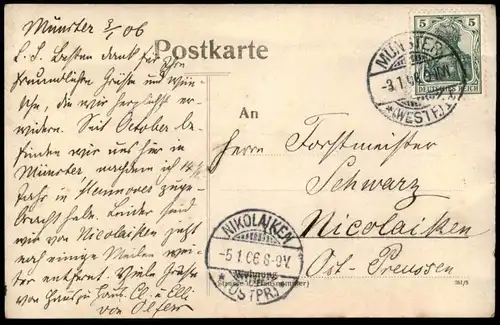 Münster 3/1 06
L. S. Besten Dank für Ihre
freundlichen Grüße und Wün-
sche, die wir herzlichst er-
widern. Seit October be-
finden wir uns hier in
Münster, nachdem ich 14 1/2
Jahr in Hannover zuge-
bracht habe. Leider sind
wir von Nicolaiken jetzt
noch einige Meilen wei-
ter entfernt. Viele Grüße
von Haus zu Haus. Ihr u. Elli
von Olfers
Postkarte
An
Herrn Forstmeister
Schwarz
Nicolaiken
Ost-Preussen
Wohnung
5 5
DEUTSCHES REICH
MÜNSTER
-3.1.06.
*(WESTF.)
NIKOLAIKEN
-5.1.06.8-9V.
*(OSTPR.)